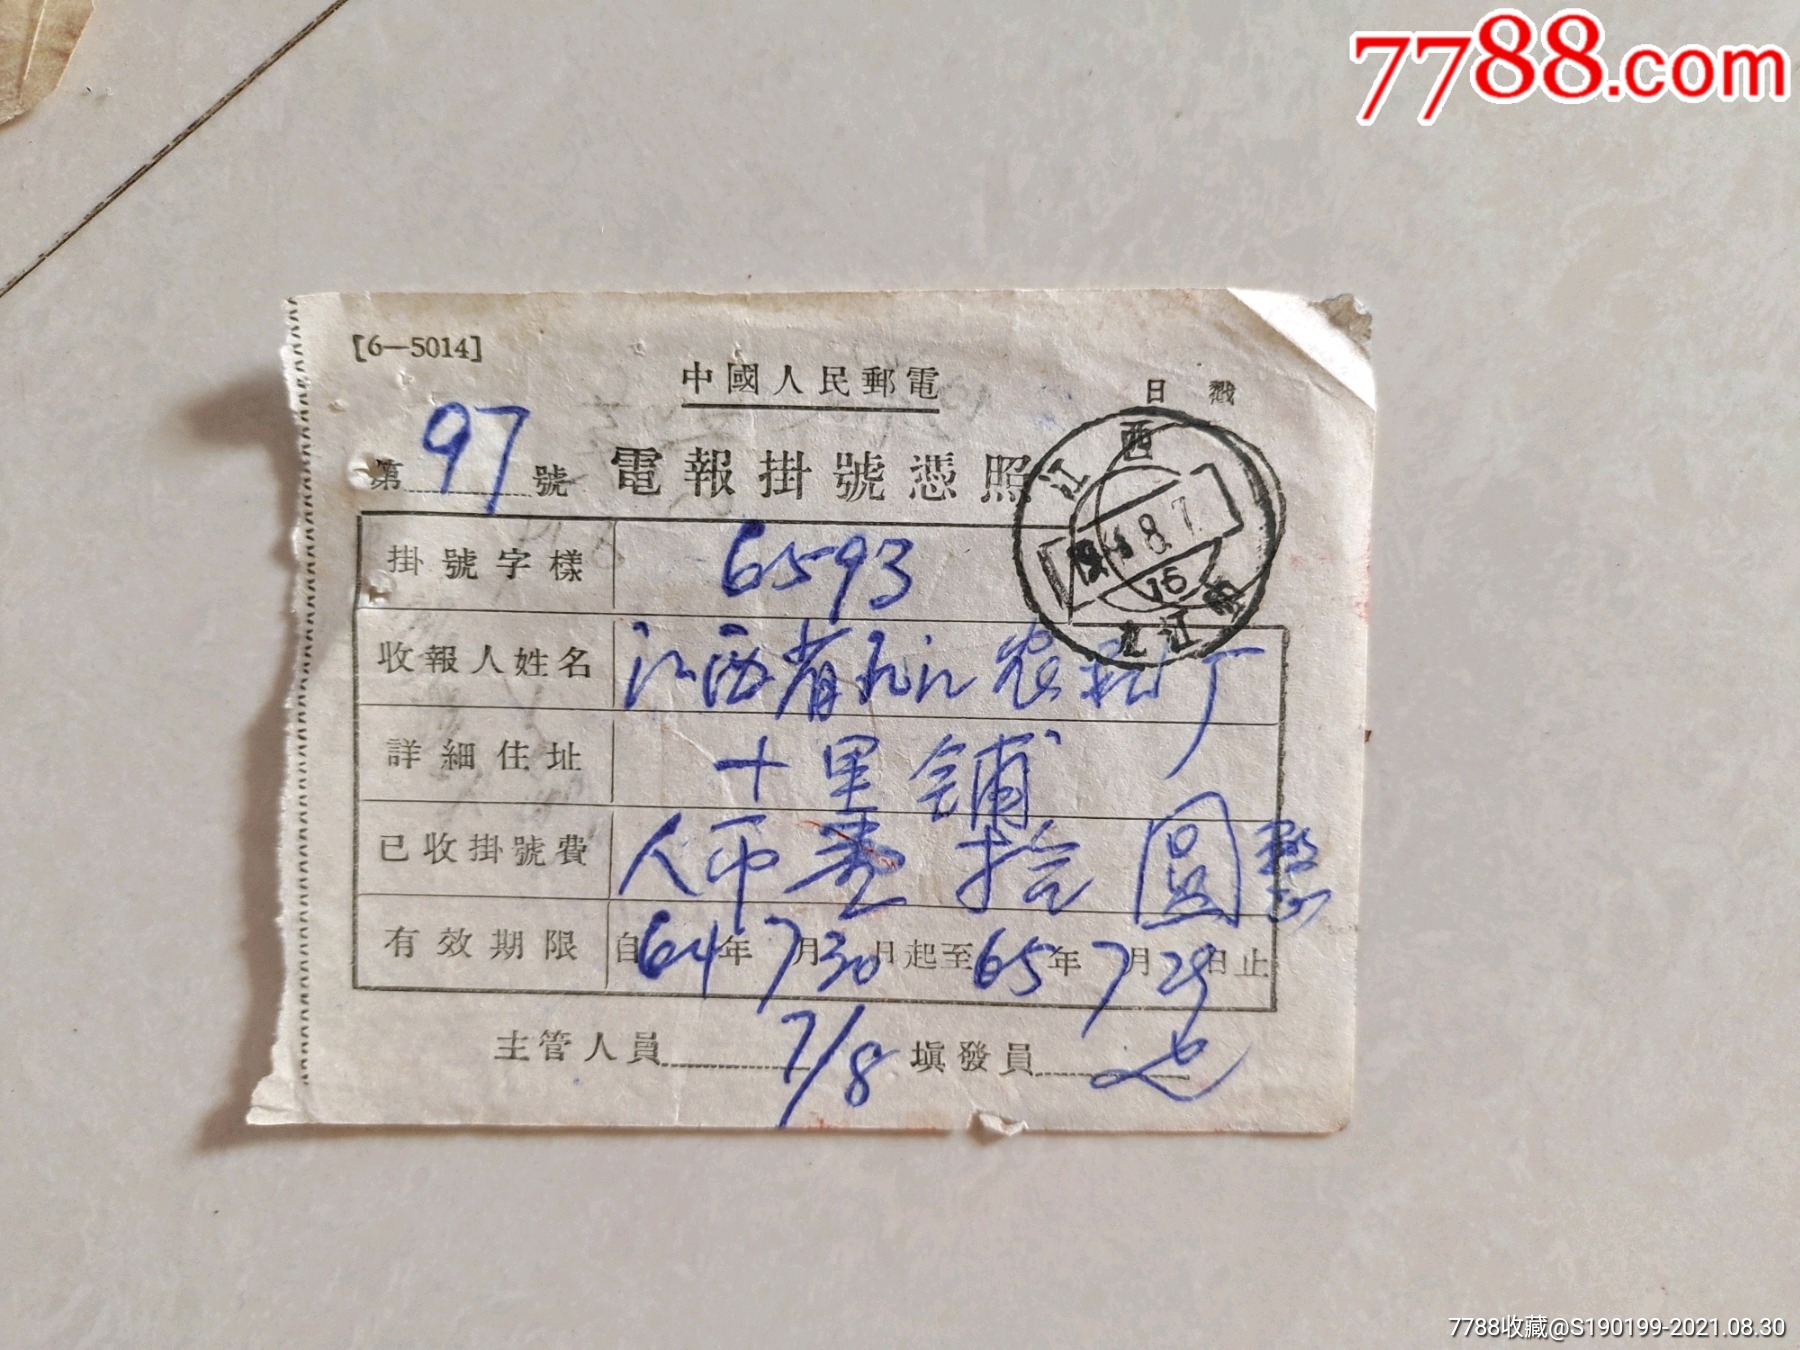 7788.com
[6—5014]
中國人民郵電
日戳
第97號 電報掛號憑照
江西
8.7
16
九江
掛號字樣 6593
收報人姓名 江西省九江农药厂
詳細住址 十里铺
已收掛號費 人币壹拾圆整
有效期限 自64年7月30日起至65年7月29日止
主管人員 7/8 塡發員
7788收藏@S190199-2021.08.30